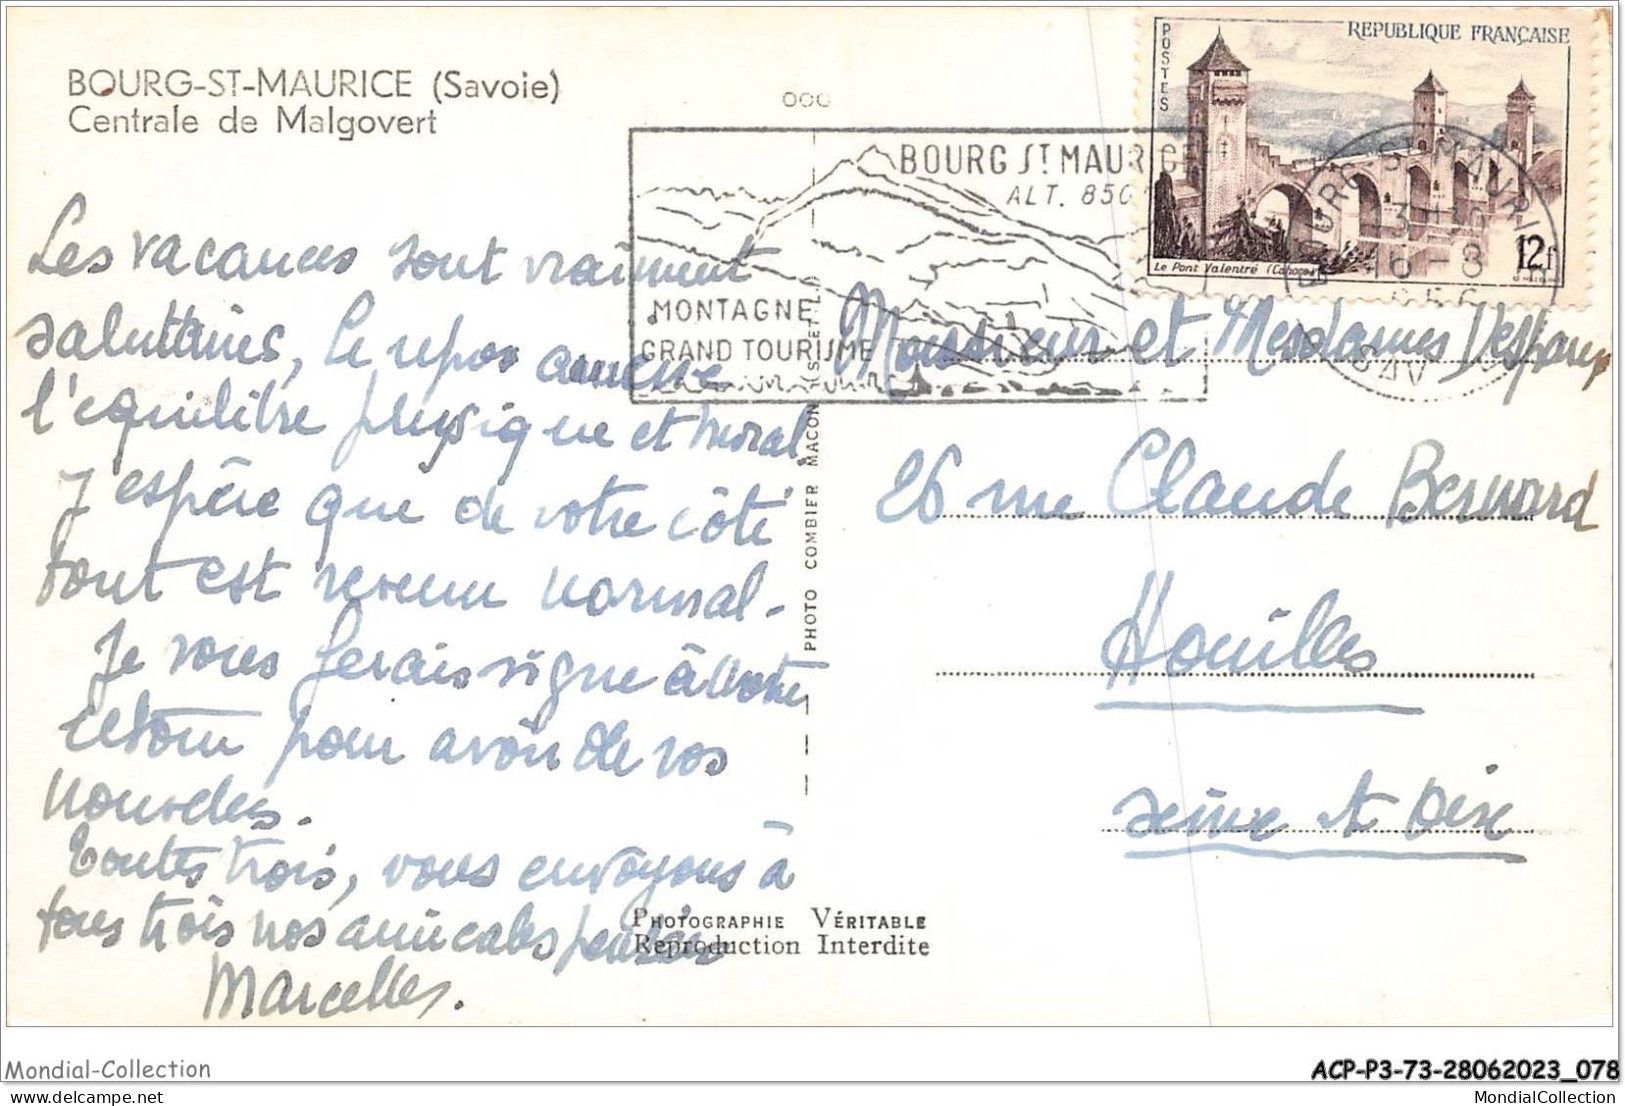 BOURG-ST-MAURICE (Savoie)
Centrale de Malgovert
Les vacances sont vraiment
salutaires, le repos amène
l'équilibre physique et moral
J'espère que de votre côté
tout est revenu normal -
Je vous ferais signe à votre
retour pour avoir de vos
nouvelles.
Toutes trois, vous envoyons à
tous trois nos amicales pensées
Marcelles.
BOURG ST MAURICE
ALT. 850
MONTAGNE
GRAND TOURISME
PHOTO COMBIER MACON
PHOTOGRAPHIE VÉRITABLE
Reproduction Interdite
POSTES
REPUBLIQUE FRANÇAISE
Le Pont Valentré (Cahors)
12f
BOURG ST MAURICE
16-8
SAV
Monsieur et Mesdames
26 rue Claude Bernard
Houilles
Seine et Oise
Mondial-Collection
ACP-P3-73-28062023_078
MondialCollection